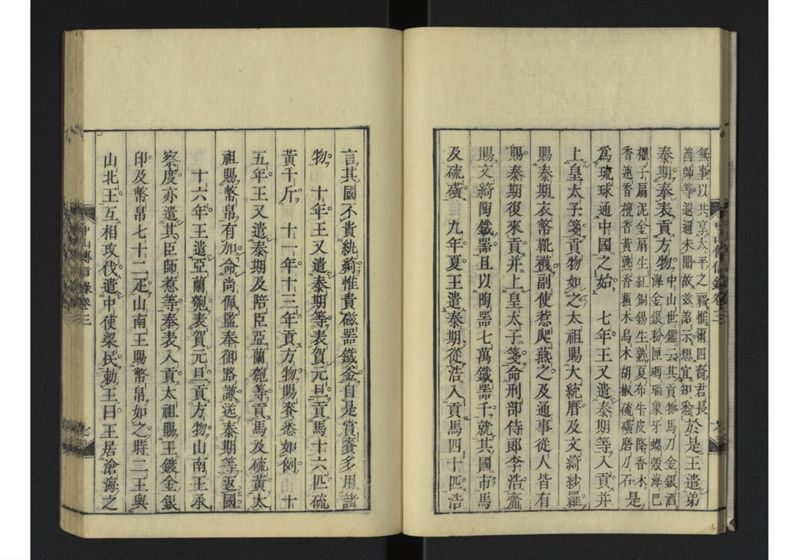 無事以共享太平之福惟爾四裔君長
酋帥等遐邇未聞故玆詔示想宜知悉於是王遣弟
泰期奉表貢方物中山世鑑云其貢物馬刀金銀酒
海金銀粉匣瑪瑙象牙螺殼海巴
櫂子扇泥金扇生紅銅錫生熟夏布牛皮降香木
香速香檀香黃熟香蘓木烏木胡椒硫磺磨刀石是
爲琉球通中國之始 七年王又遣泰期等入貢并
上皇太子箋貢物如之太祖賜大統曆及文綺紗羅
賜泰期衣幣靴襪副使惹爬燕之及通事從人皆有
賜泰期復來貢并上皇太子箋命刑部侍郎李浩齎
賜文綺陶鐵器且以陶器七萬鐵器千就其國市馬
及硫磺 九年夏王遣泰期從浩入貢馬四十匹浩
中山傳信錄卷三
言其國不貴紈綺惟貴磁器鐵釜自是賞賚多用諸
物 十年王又遣泰期等表賀元旦貢馬十六匹硫
黃千斤 十一年十三年貢方物賜賚悉如例 十
五年王又遣泰期及陪臣亞蘭匏等貢馬及硫黃太
祖賜幣帛有加命尚佩監奉御路謙送泰期等返國
十六年王遣亞蘭匏表賀元旦貢方物山南王承
察度亦遣其臣師惹等奉表入貢太祖賜王鍍金銀
印及幣帛七十二疋山南王賜幣帛如之時二王與
山北王互相攻伐遣中使梁民勅王曰王居滄海之
中山傳信錄卷三